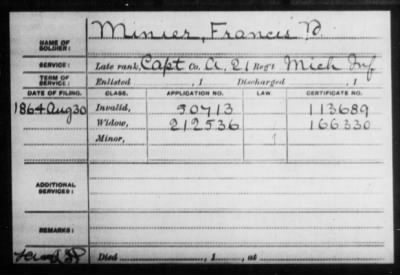 NAME OF SOLDIER: Minier, Francis P.
SERVICE: Late rank, Capt Co. A, 21 Reg't Mich Inf
TERM OF SERVICE: Enlisted , 1 Discharged , 1
DATE OF FILING. CLASS. APPLICATION NO. LAW. CERTIFICATE NO.
1864 Aug 30 Invalid, 50713 113689
Widow, 212536 166330
Minor,
ADDITIONAL SERVICES:
REMARKS:
Died , 1 , at